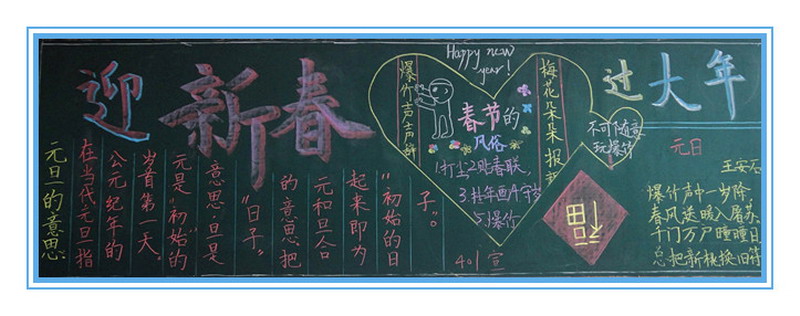 迎新春
元旦的意思:
在当代元旦指
公元纪年的
岁首第一天。
元是“初始的
意思,旦是
“日子”
的意思。把
元和旦合
起来即为
“初始的日
子”。
401宣
Happy new
year!
爆竹声声
春节的
风俗
1.打尘2.贴春联,
3.挂年画4.守岁
5.爆竹
梅花朵朵报
不可随意
玩爆竹
福
过大年
元日
王安石
爆竹声中一岁除
春风送暖入屠苏.
千门万户瞳瞳日
总把新桃换旧符